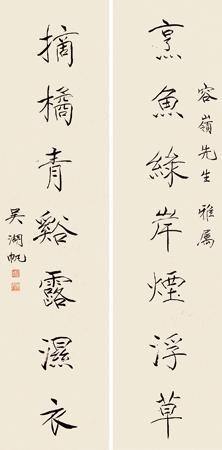 容嶺先生 雅屬
烹魚綠岸煙浮草
摘橘青谿露濕衣
吳湖帆